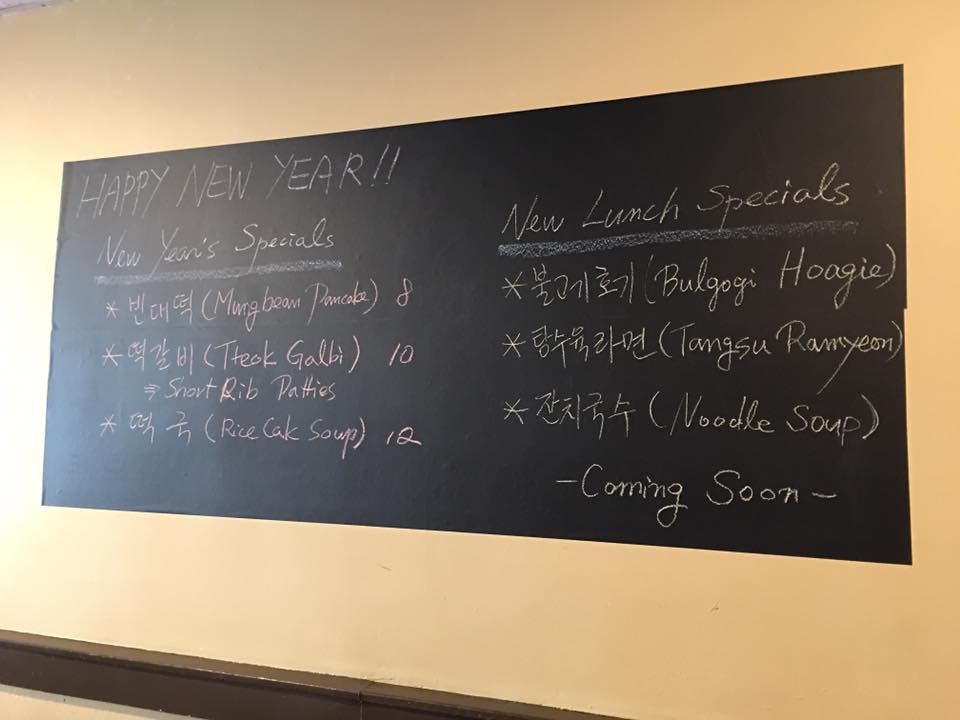 HAPPY NEW YEAR!!
New Year's Specials
*빈대떡 (Mungbean Pancake) 8
* 떡갈비 (Tteok Galbi) 10
⇒ Short Rib Patties
* 떡국 (Rice Cak Soup) 12
New Lunch Specials
* 불고기 호기 (Bulgogi Hoagie)
* 탕수육라면 (Tangsu Ramyeon)
* 잔치국수 (Noodle Soup)
- Coming Soon -